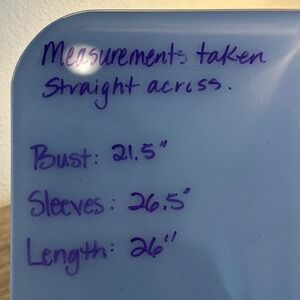 Measurements taken
straight across.
Bust: 21.5"
Sleeves: 26.5"
Length: 26"